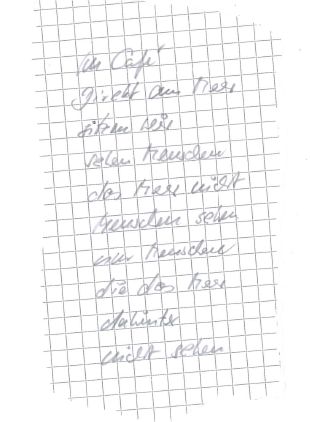 Im Café
direkt am Meer
sitzen wir
sehen Menschen
das Meer nicht
Menschen sehen
nur Menschen
die das Meer
dahinter
nicht sehen